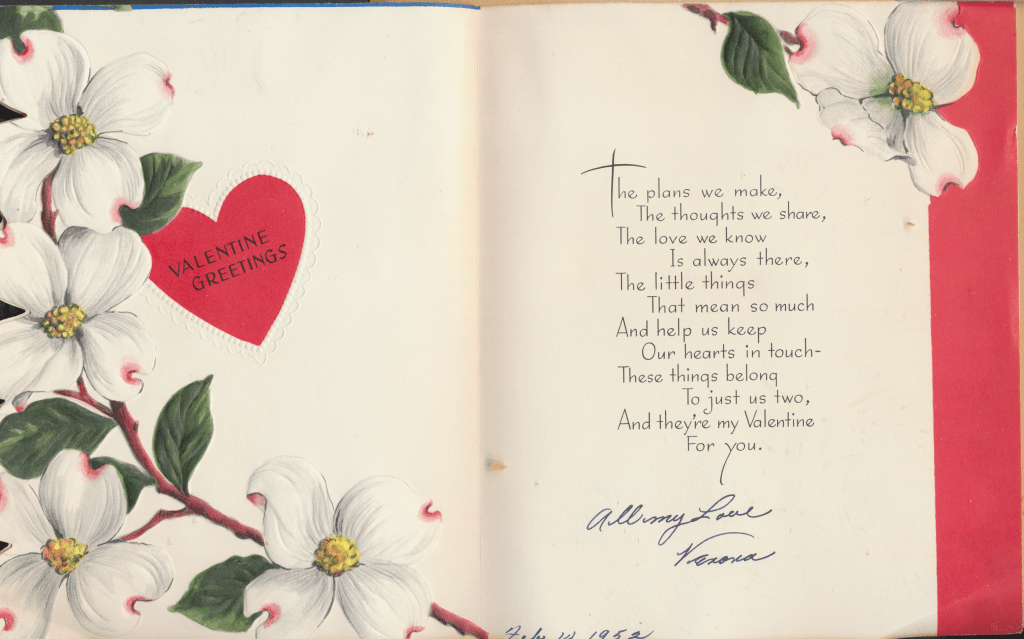 VALENTINE
GREETINGS
The plans we make,
The thoughts we share,
The love we know
Is always there,
The little things
That mean so much
And help us keep
Our hearts in touch-
These things belong
To just us two,
And they're my Valentine
For you.
All my Love
Varona
Feb 14 1952